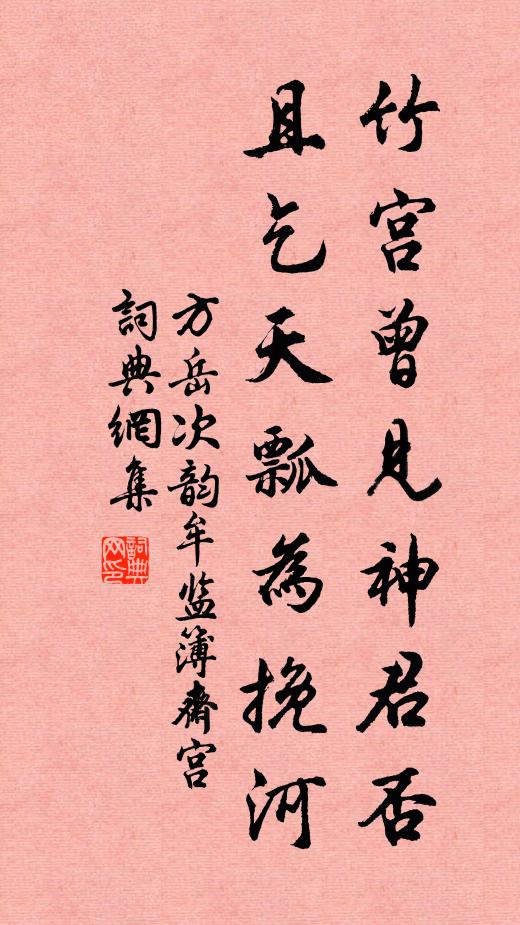 竹宫曾見神君否
且乞天瓢為挽河
方岳次韵牟监簿齋宫
詞典網集
詞典网印